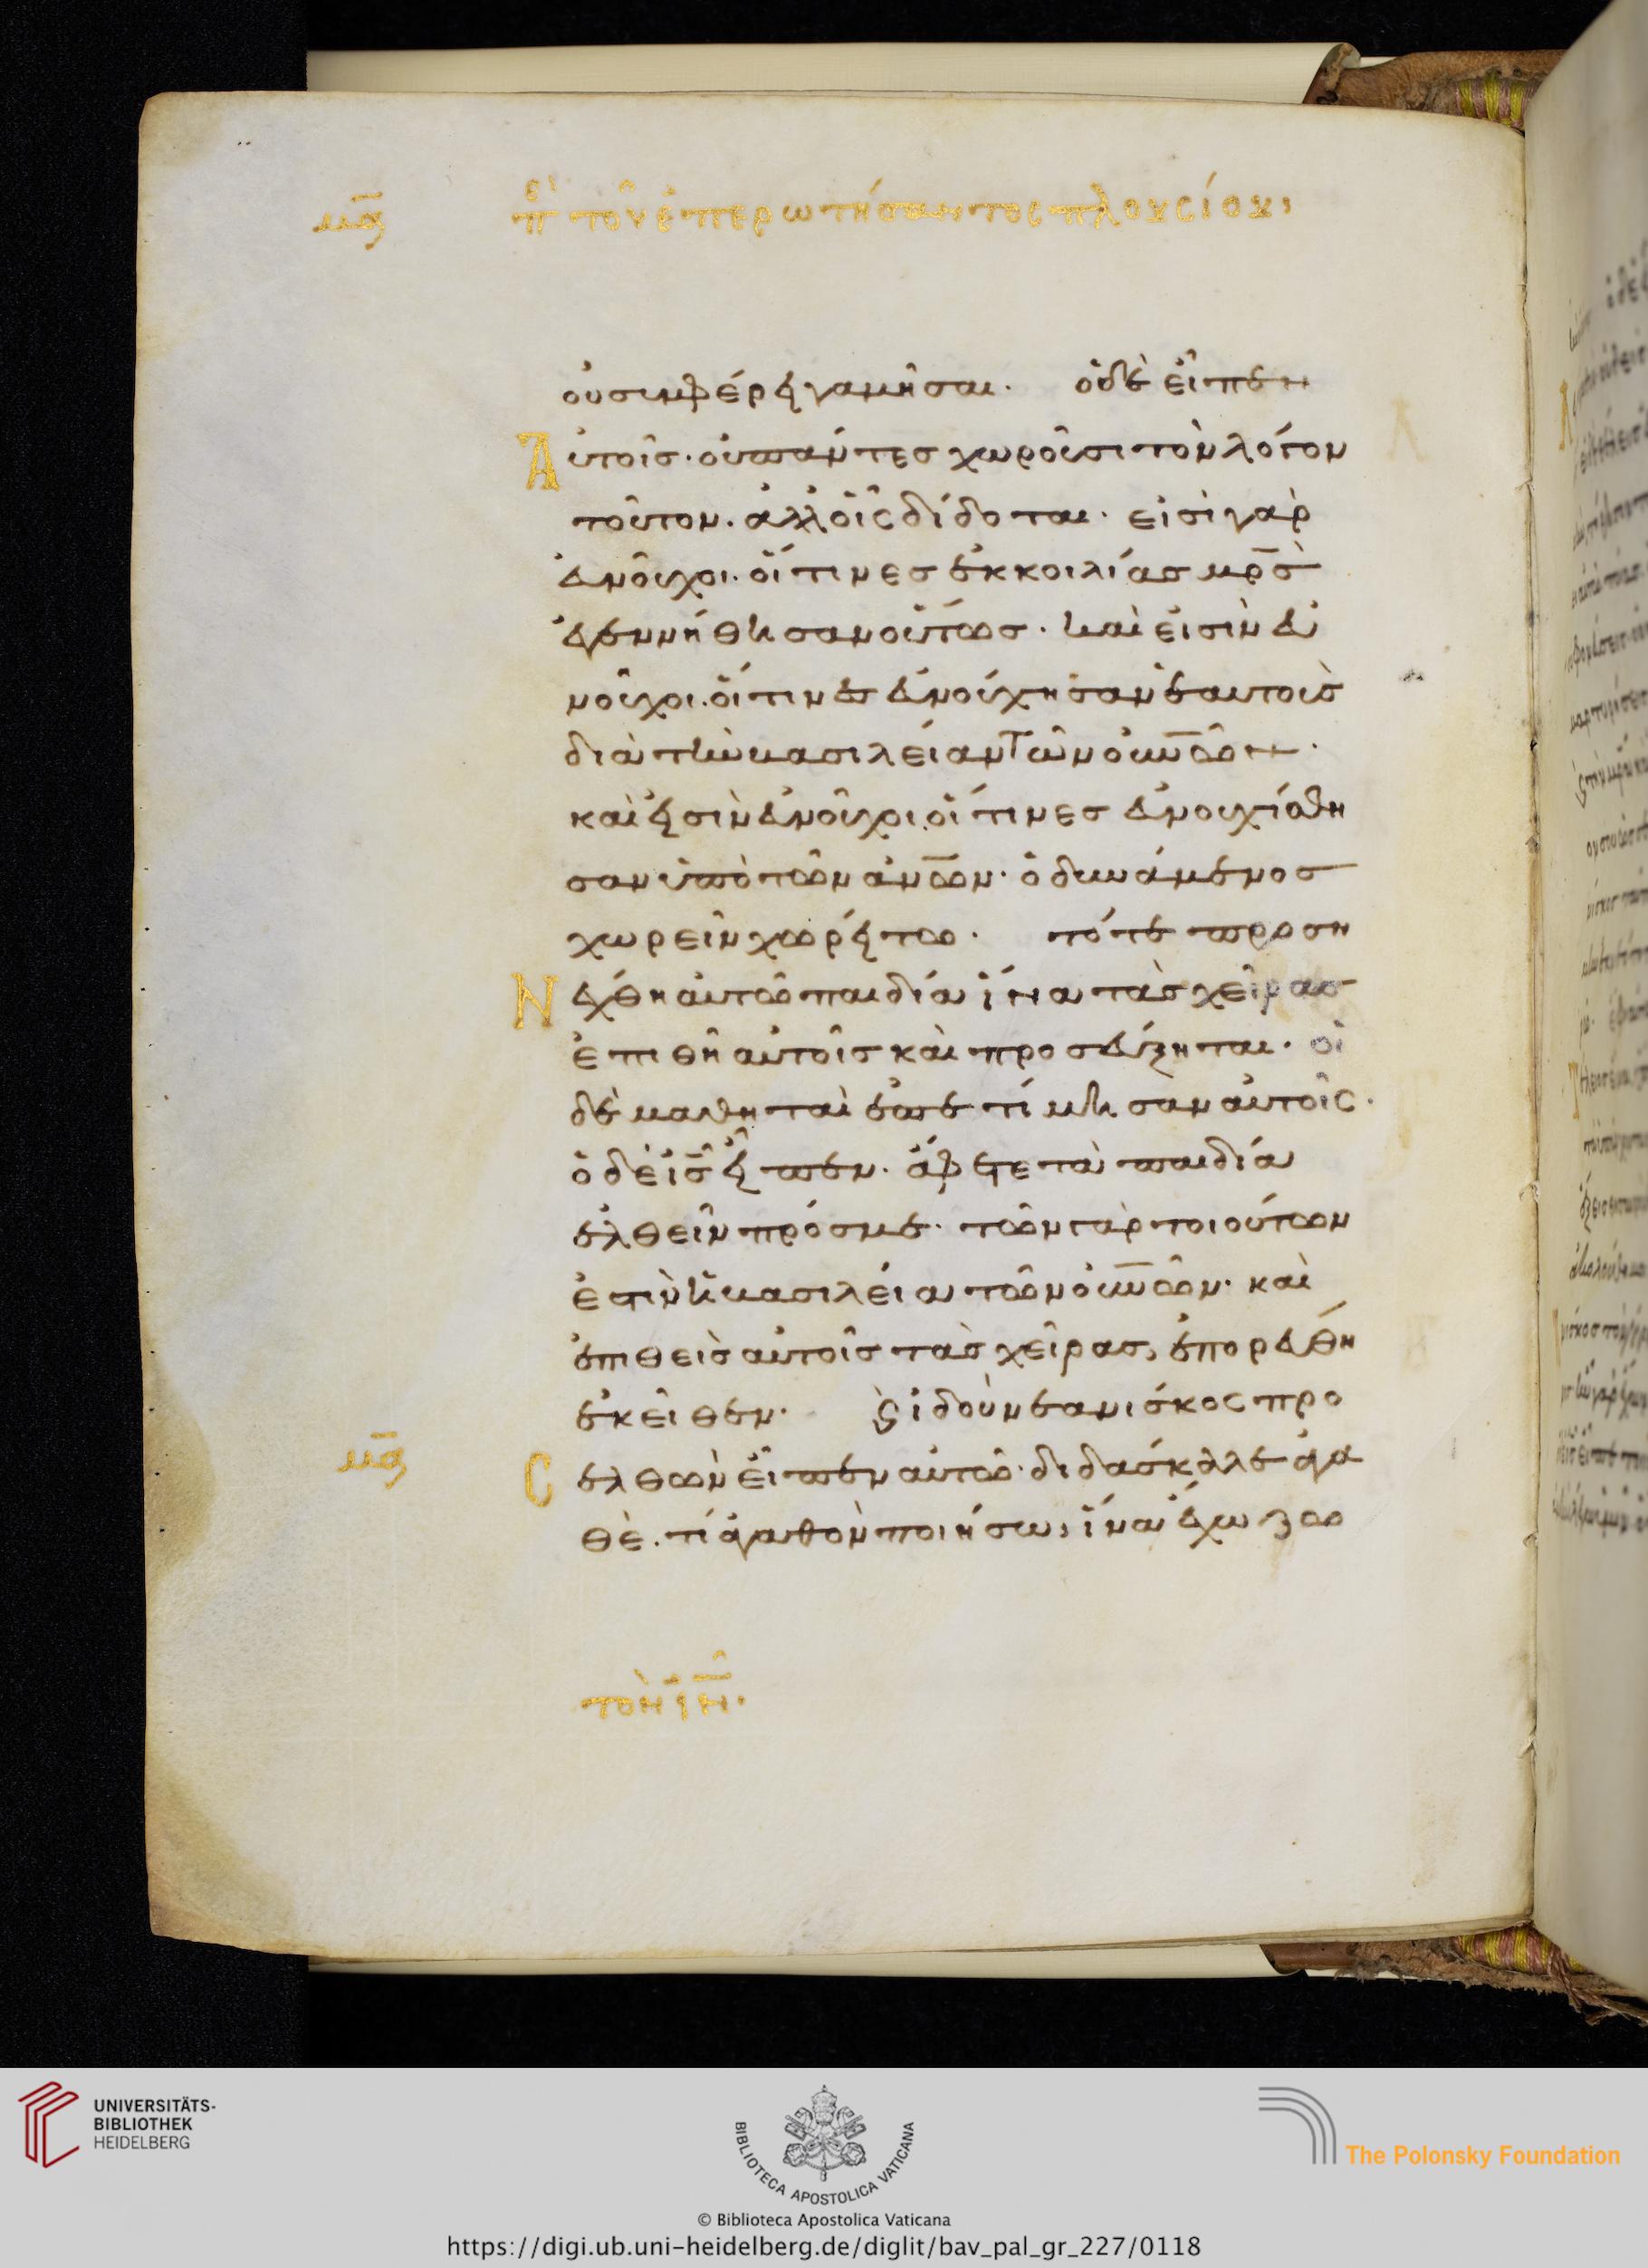 μα π̅ε̅ τοῦ ἐπερωτήσαντος πλουσίου,
οὐ συμφέρει γαμῆσαι· ὁ δὲ εἶπεν
Αὐτοῖς· οὐ πάντες χωροῦσι τὸν λόγον
τοῦτον. ἀλλ οἷς δίδοται· εἰσὶ γὰρ
εὐνοῦχοι. οἵτινες ἐκ κοιλίας μρ̅ς
ἐγεννήθησαν οὕτως. καὶ εἰσὶν εὐ
νοῦχοι. οἵτινες εὐνούχησαν ἑαυτοὺς
διὰ τὴν βασιλείαν τῶν οὐν̅ῶν·
καὶ εἰσὶν εὐνοῦχοι. οἵτινες εὐνουχίσθη
σαν ὑπὸ τῶν ἀν̅ων· ὁ δυνάμενος
χωρεῖν χωρείτω· τότε προση
Νέχθη αὐτῶ παιδία ἵνα τὰς χεῖρας
ἐπιθῆ αὐτοῖς καὶ προσεύξηται· οἱ
δὲ μαθηταὶ ἐπετίμησαν αὐτοῖς·
ὁ δὲ ι̅ς εἶπεν. ἄφετε τὰ παιδία
ἐλθεῖν πρός με· τῶν γὰρ τοιούτων
ἐστὶν ἡ βασιλεία τῶν οὐν̅ῶν· καὶ
ἐπιθεὶς αὐτοῖς τὰς χεῖρας, ἐπορεύθη
ἐκεῖθεν· ϗ ἰδοὺ νεανίσκος προ
μα Cελθὼν εἶπεν αὐτῶ· διδάσκαλε ἀγα
θὲ. τί ἀγαθὸν ποιήσω, ἵνα ἔχω ζω
τὸν ι̅ν̅·
UNIVERSITÄTS-
BIBLIOTHEK
HEIDELBERG
BIBLIOTECA APOSTOLICA VATICANA
The Polonsky Foundation
© Biblioteca Apostolica Vaticana
https://digi.ub.uni-heidelberg.de/diglit/bav_pal_gr_227/0118